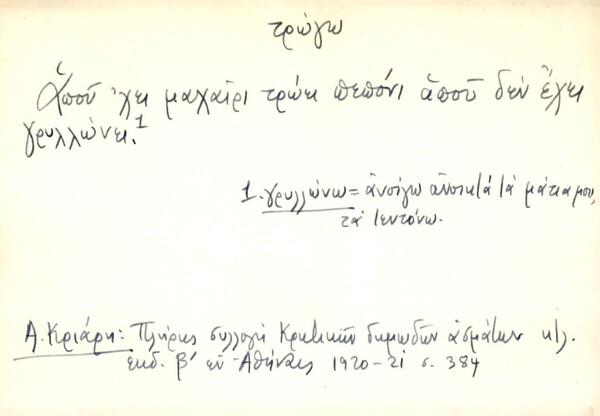 τρώγω
Ἁποὺ ἔχει μαχαῖρι τρώει πεπόνι ἁποὺ δὲν ἔχει
γρυλλώνει.¹
1. γρυλλώνω = ἀνοίγω ἀνοικτά τά μάτια μου,
τά τεντόνω.
Α. Κριάρη: Πλήρης συλλογή Κρητικῶν δημωδῶν ἀσμάτων κτλ.
ἐκδ. β' ἐν Ἀθήναις 1920-21 σ. 384